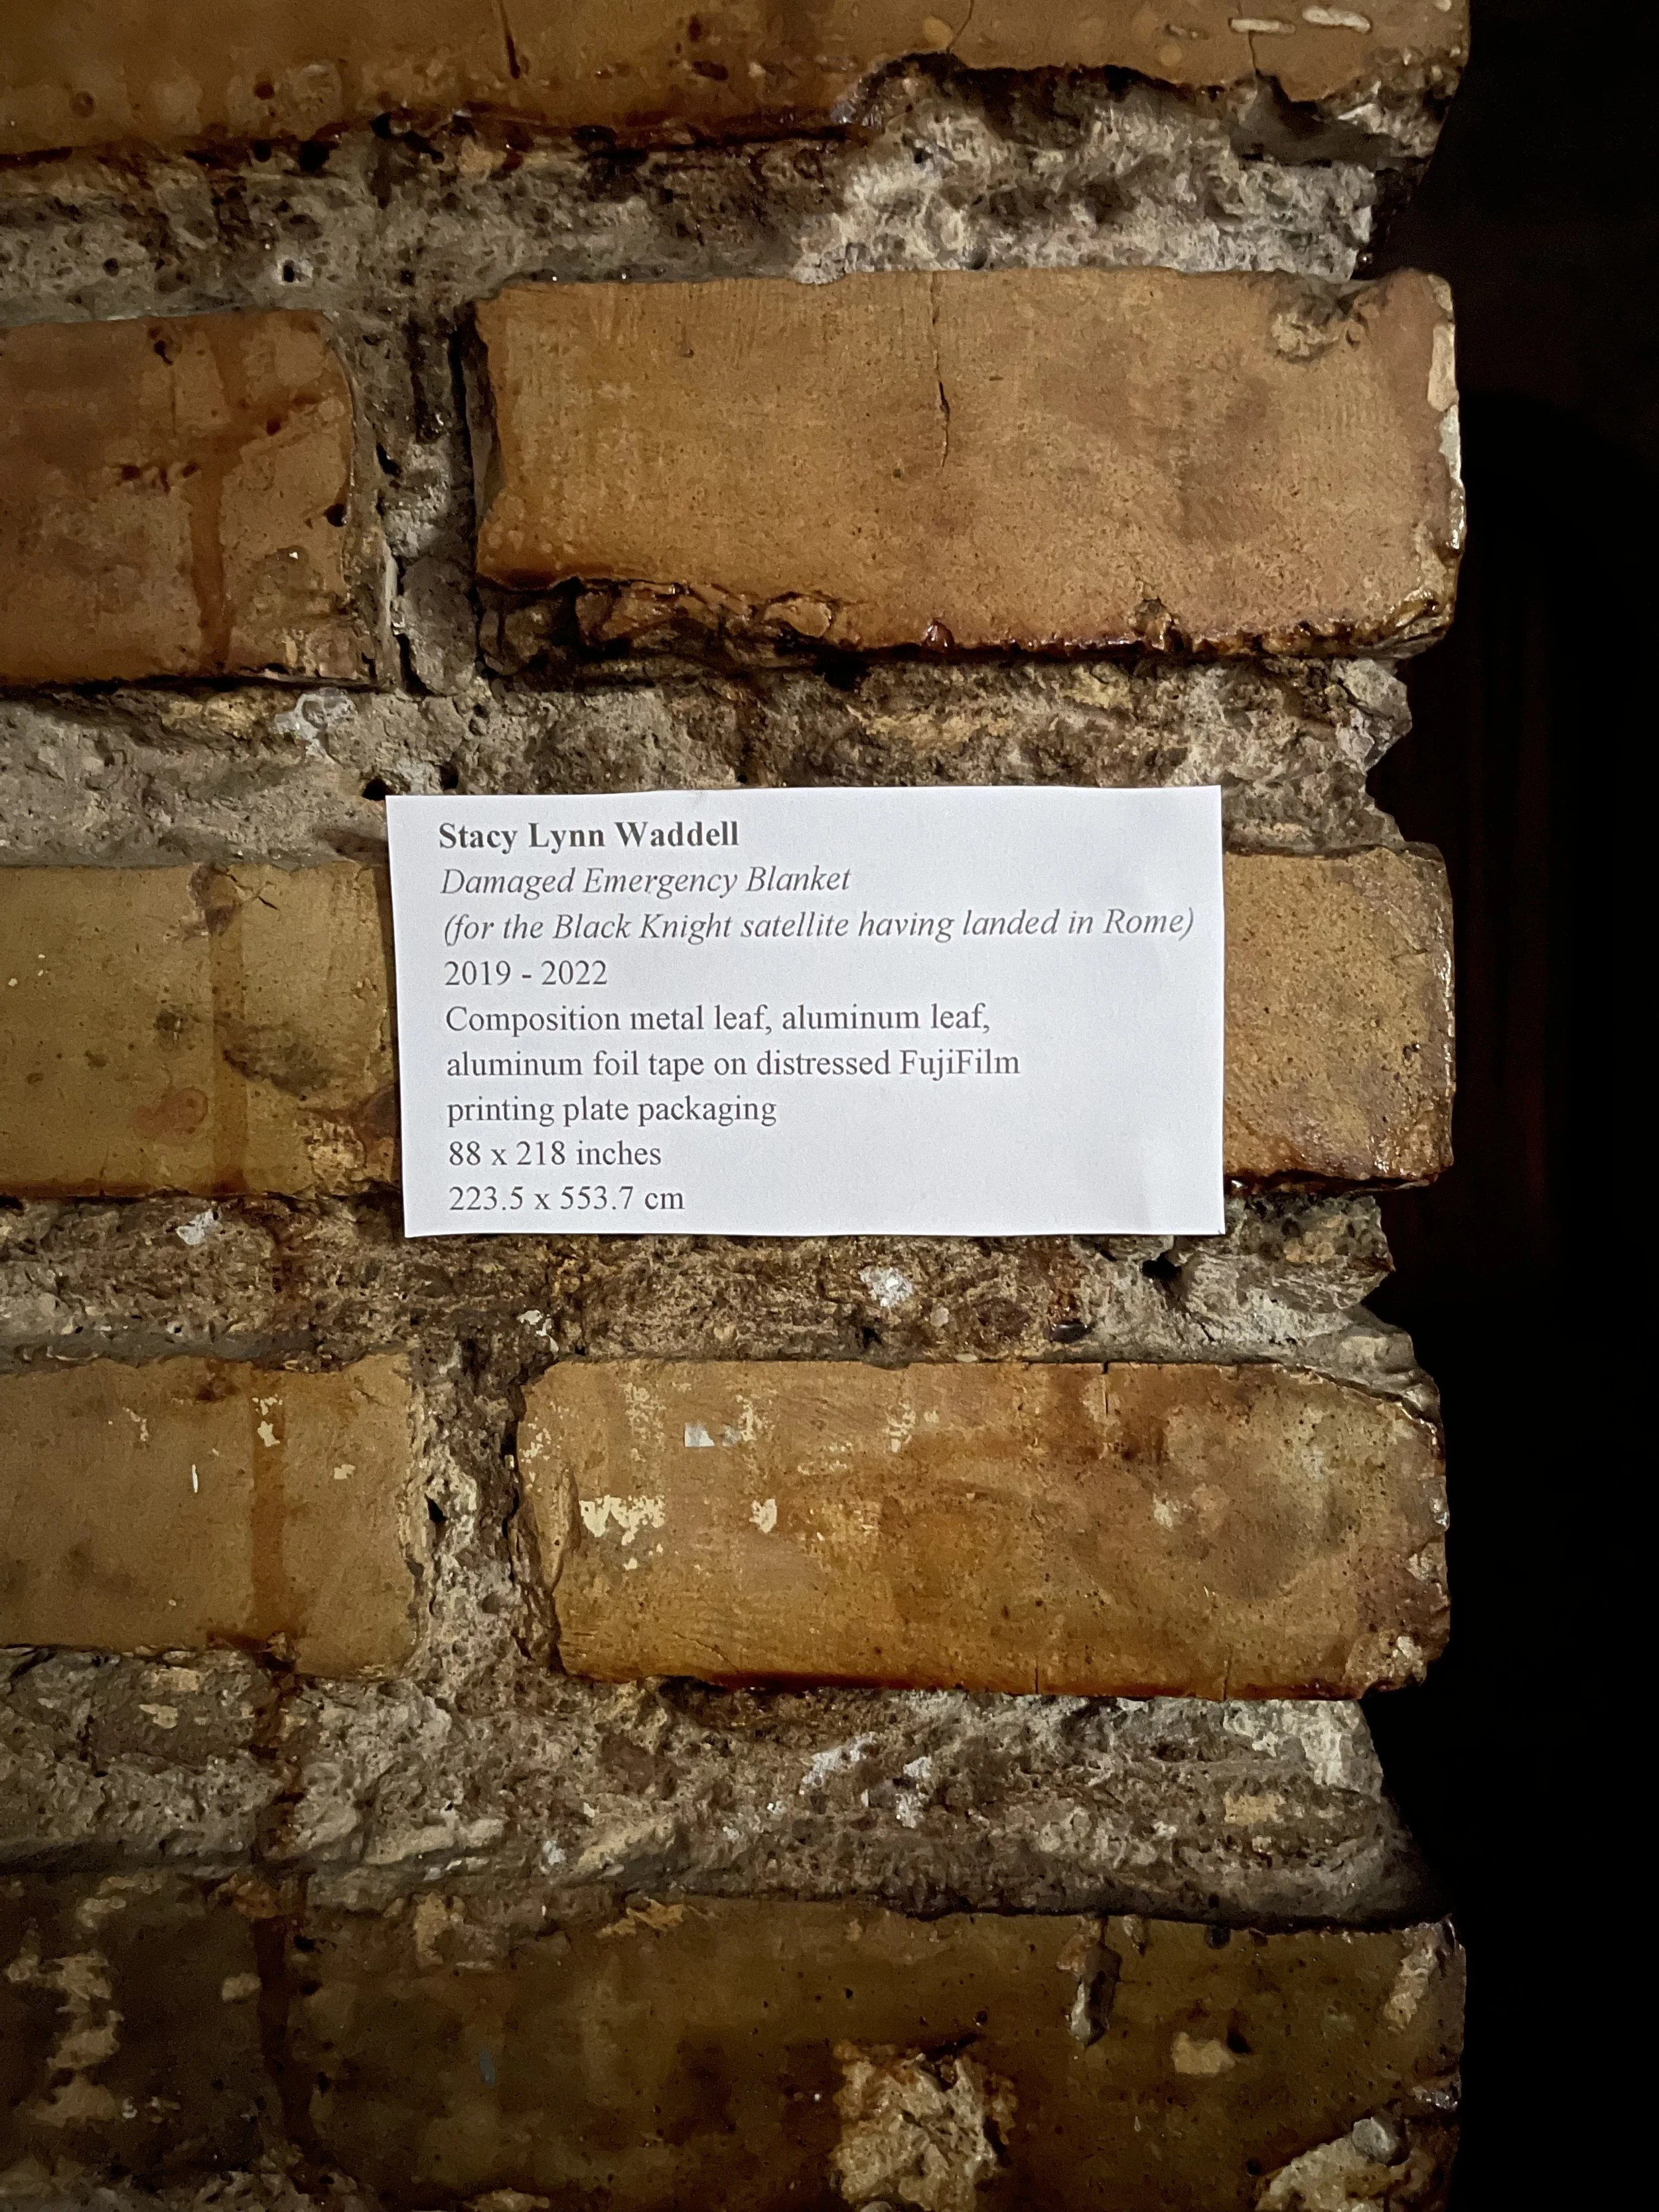 Stacy Lynn Waddell
Damaged Emergency Blanket
(for the Black Knight satellite having landed in Rome)
2019 - 2022
Composition metal leaf, aluminum leaf,
aluminum foil tape on distressed FujiFilm
printing plate packaging
88 x 218 inches
223.5 x 553.7 cm